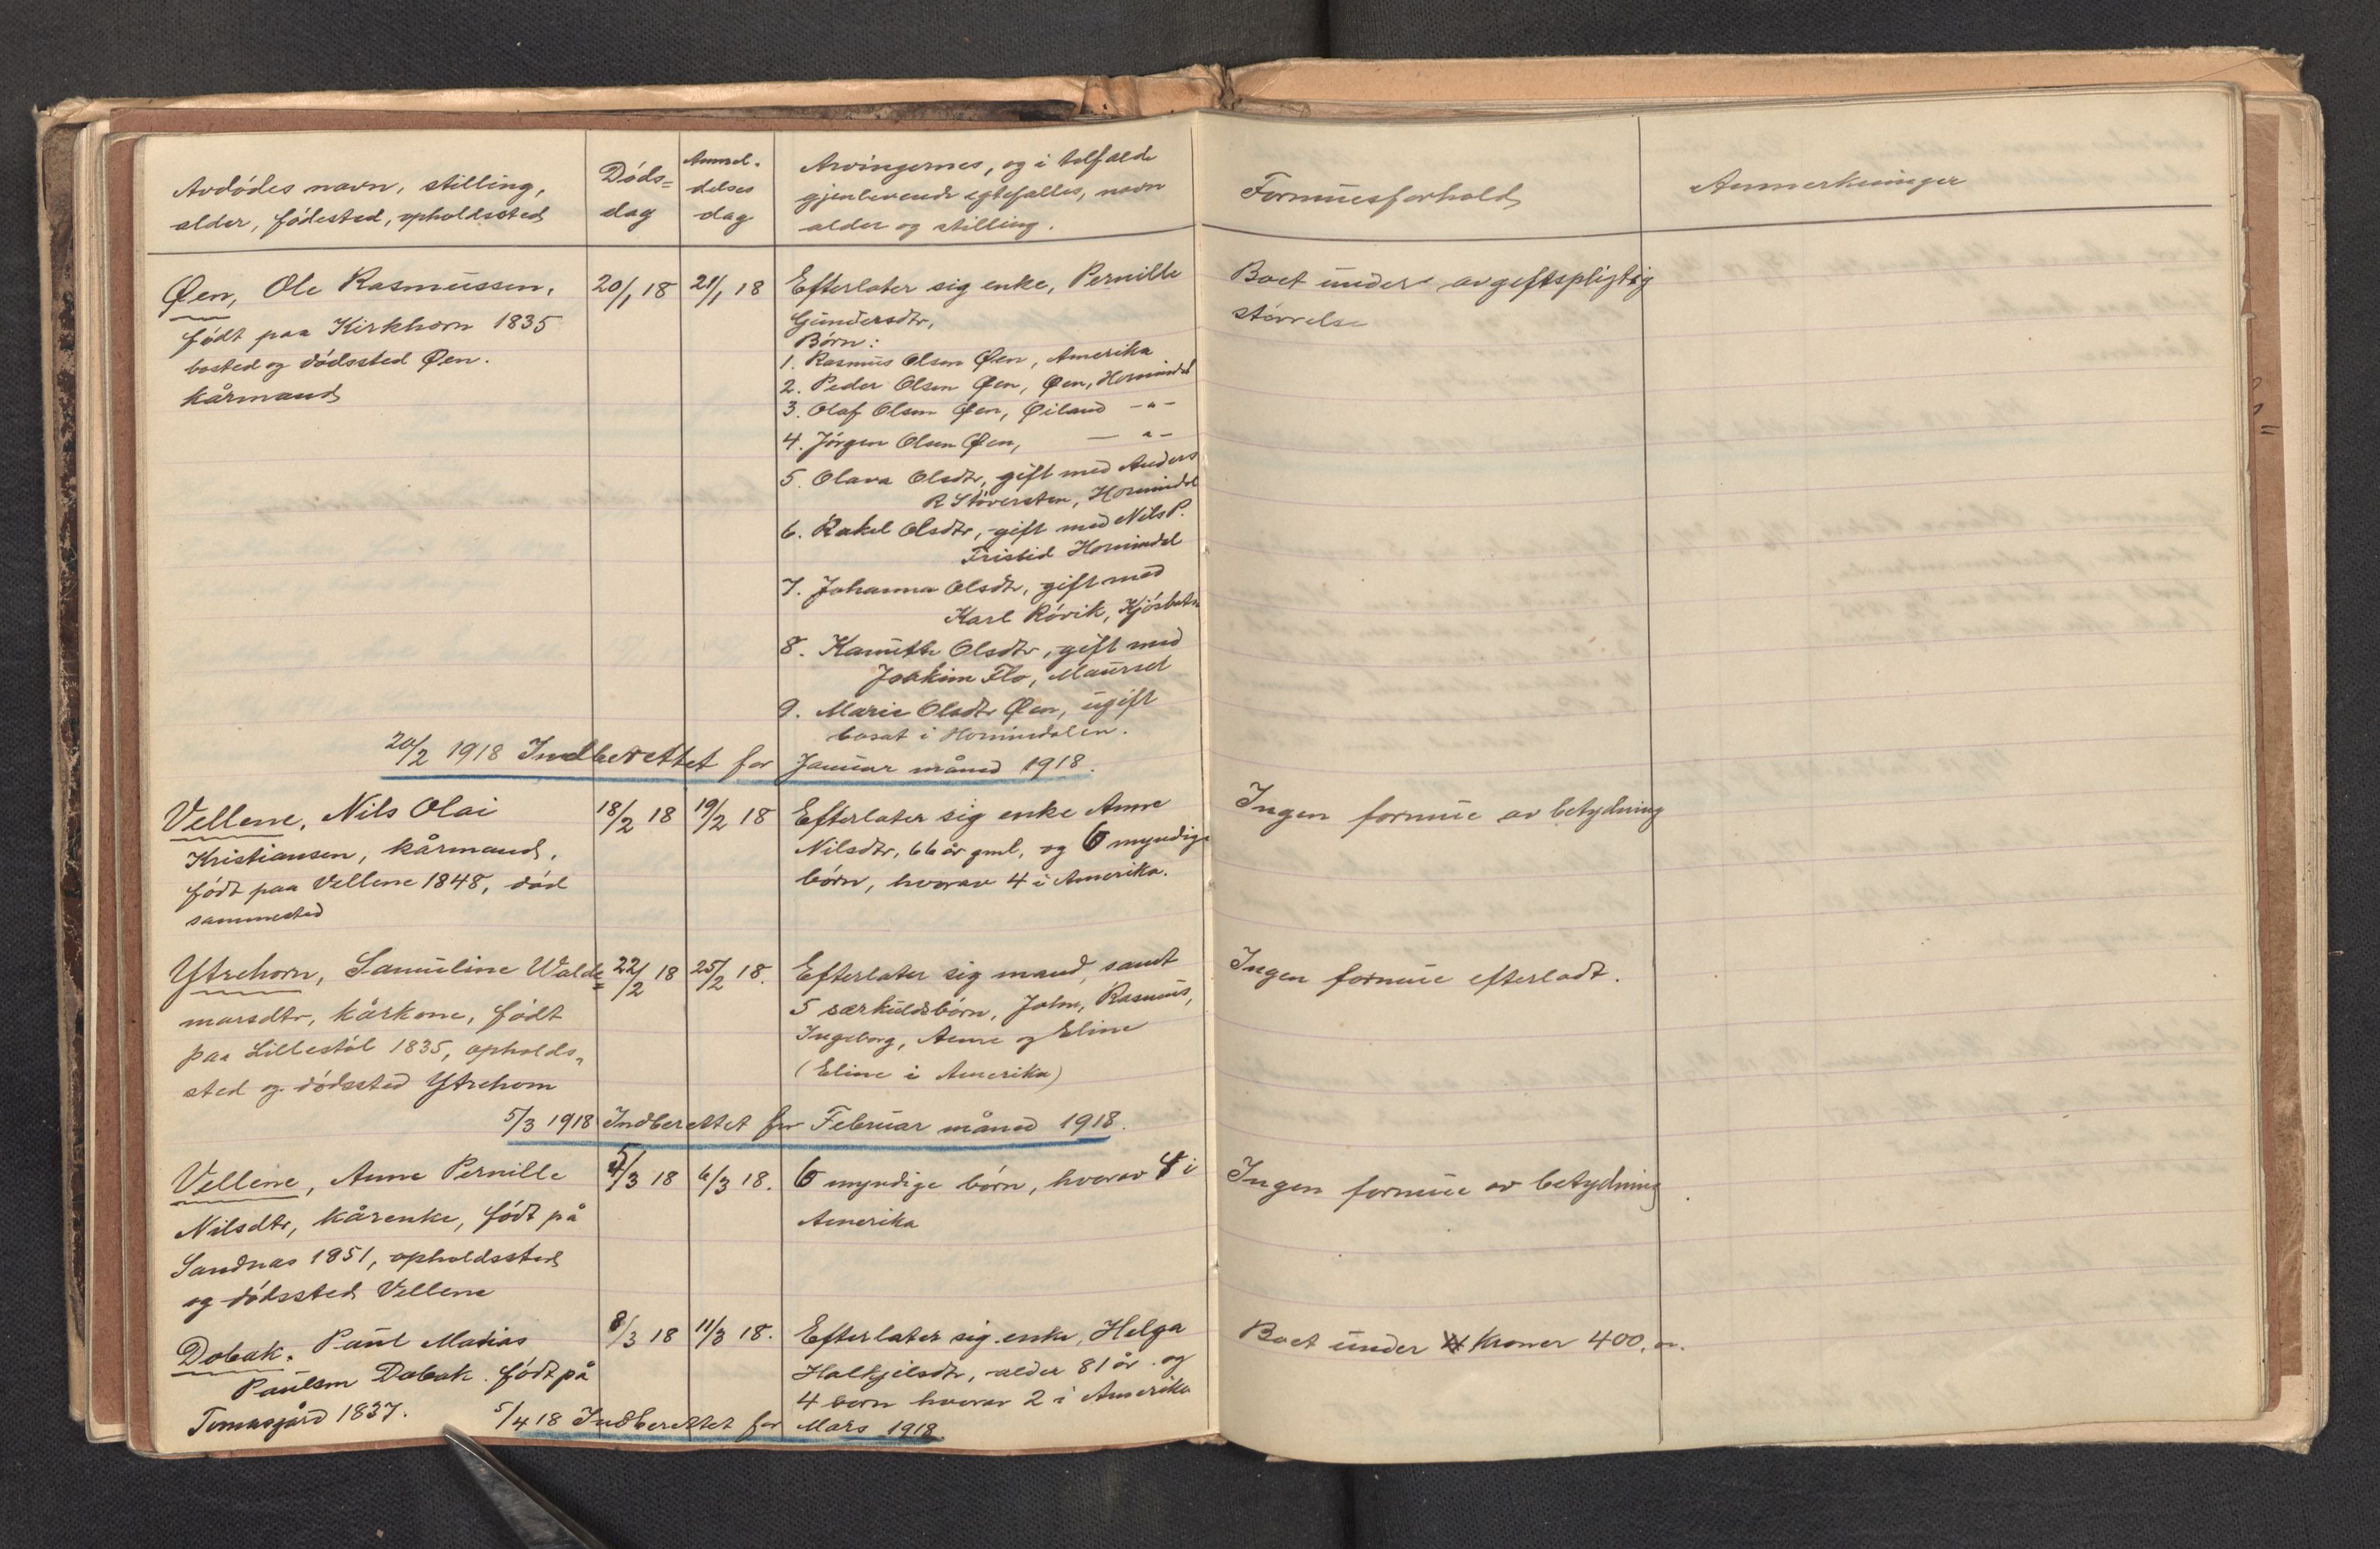 Avdødes navn, stilling,
alder, fødested, opholdssted
Døds=
dag
Anmel-
delses
dag
Arvingernes, og i tilfælde
gjenlevende egtefælles, navn
alder og stilling.
Formuesforhold
Anmerkninger
Øen, Ole Rasmussen,
født paa Kirkhorn 1835
bosted og dødssted Øen.
kårmand
20/1 18
21/1 18
Efterlater sig enke, Pernille
Gundersdtr,
Børn:
1. Rasmus Olsen Øen, Amerika
2. Peder Olsen Øen, Øen, Hornindal
3. Olaf Olsen Øen, Øiland —"—
4. Jørgen Olsen Øen, — "—
5. Olava Olsdtr, gift med Anders
R Støversten, Hornindal
6. Rakel Olsdtr, gift med Nils P.
Tristid Hornindal
7. Johanna Olsdtr, gift med
Karl Rørvik, Kjøsbotn
8. Kanutte Olsdtr, gift med
Joakim Flo, Maurset
9. Marie Olsdtr Øen, ugift
bosat i Hornindalen.
Boet under avgiftspligtig
størrelse
20/2 1918 Indberettet for Januar måned 1918.
Vellene, Nils Olai
Kristiansen, kårmand,
født paa Vellene 1848, død
sammested
18/2 18
19/2 18
Efterlater sig enke Anne
Nilsdtr, 66 år gml, og 6 myndige
børn, hvorav 4 i Amerika.
Ingen formue av betydning
Ytrehorn, Samuline Walde=
marsdtr, kårkone, født
paa Lillestøl 1835, opholds-
sted og dødssted Ytrehorn
22/2 18
25/2 18.
Efterlater sig mand, samt
5 særkuldsbørn, John, Rasmus,
Ingeborg, Anne og Eline
(Eline i Amerika)
Ingen formue efterladt.
5/3 1918 Indberettet for Februar måned 1918.
Vellene, Anne Pernille
Nilsdtr, kårenke, født på
Sandnas 1851, opholdssted
og dødssted Vellene
5/3 18
6/3 18.
6 myndige børn, hvorav 4 i
Amerika
Ingen formue av betydning.
Dobak, Paul Matias
Paulsen Dobak. født på
Tomasgård 1837.
8/3 18
11/3 18.
Efterlater sig enke, Helga
Halkjelsdtr, alder 81 år. og
4 born hvorav 2 i Amerika
Boet under Kroner 400,oo.
5/4 18 Indberettet for Mars 1918